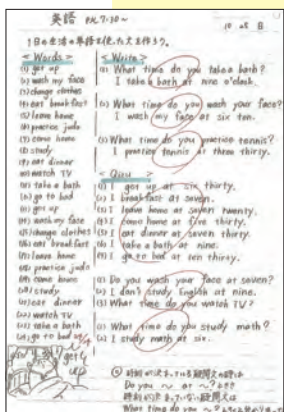 英語
10月 日
1日の生活の単語を使った文を作ろう。
< Words >
(1) get up
(2) wash my face
(3) change clothes
(4) eat breakfast
(5) leave home
(6) practice judo
(7) come home
(8) study
(9) eat dinner
(10) watch TV
(11) take a bath
(12) go to bed
(13) get up
(14) wash my face
(15) change clothes
(16) eat breakfast
(17) leave home
(18) practice judo
(19) come home
(20) study
(21) eat dinner
(22) watch TV
(23) take a bath
(24) go to bed
get
up
< Write >
(1) What time do you take a bath?
I take a bath at nine o'clock.
(2) What time do you wash your face?
I wash my face at six ten.
(3) What time do you practice tennis?
I practice tennis at three thirty.
< Quiz >
(1) I get up at six thirty.
(2) I breakfast at seven.
(3) I leave home at seven twenty.
(4) I come home at five thirty.
(5) I eat dinner at seven thirty.
(6) I take a bath at nine.
(7) I go to bed at ten thirty.
(1) Do you wash your face at seven?
(2) I don't study English at nine.
(3) What time do you watch TV?
(1) What time do you study math?
(2) I study math at six.
◎ 時刻が決まっている疑問文の時は
Do you ～ at ～?
時刻が決まっていない疑問文は
What time do you ～?